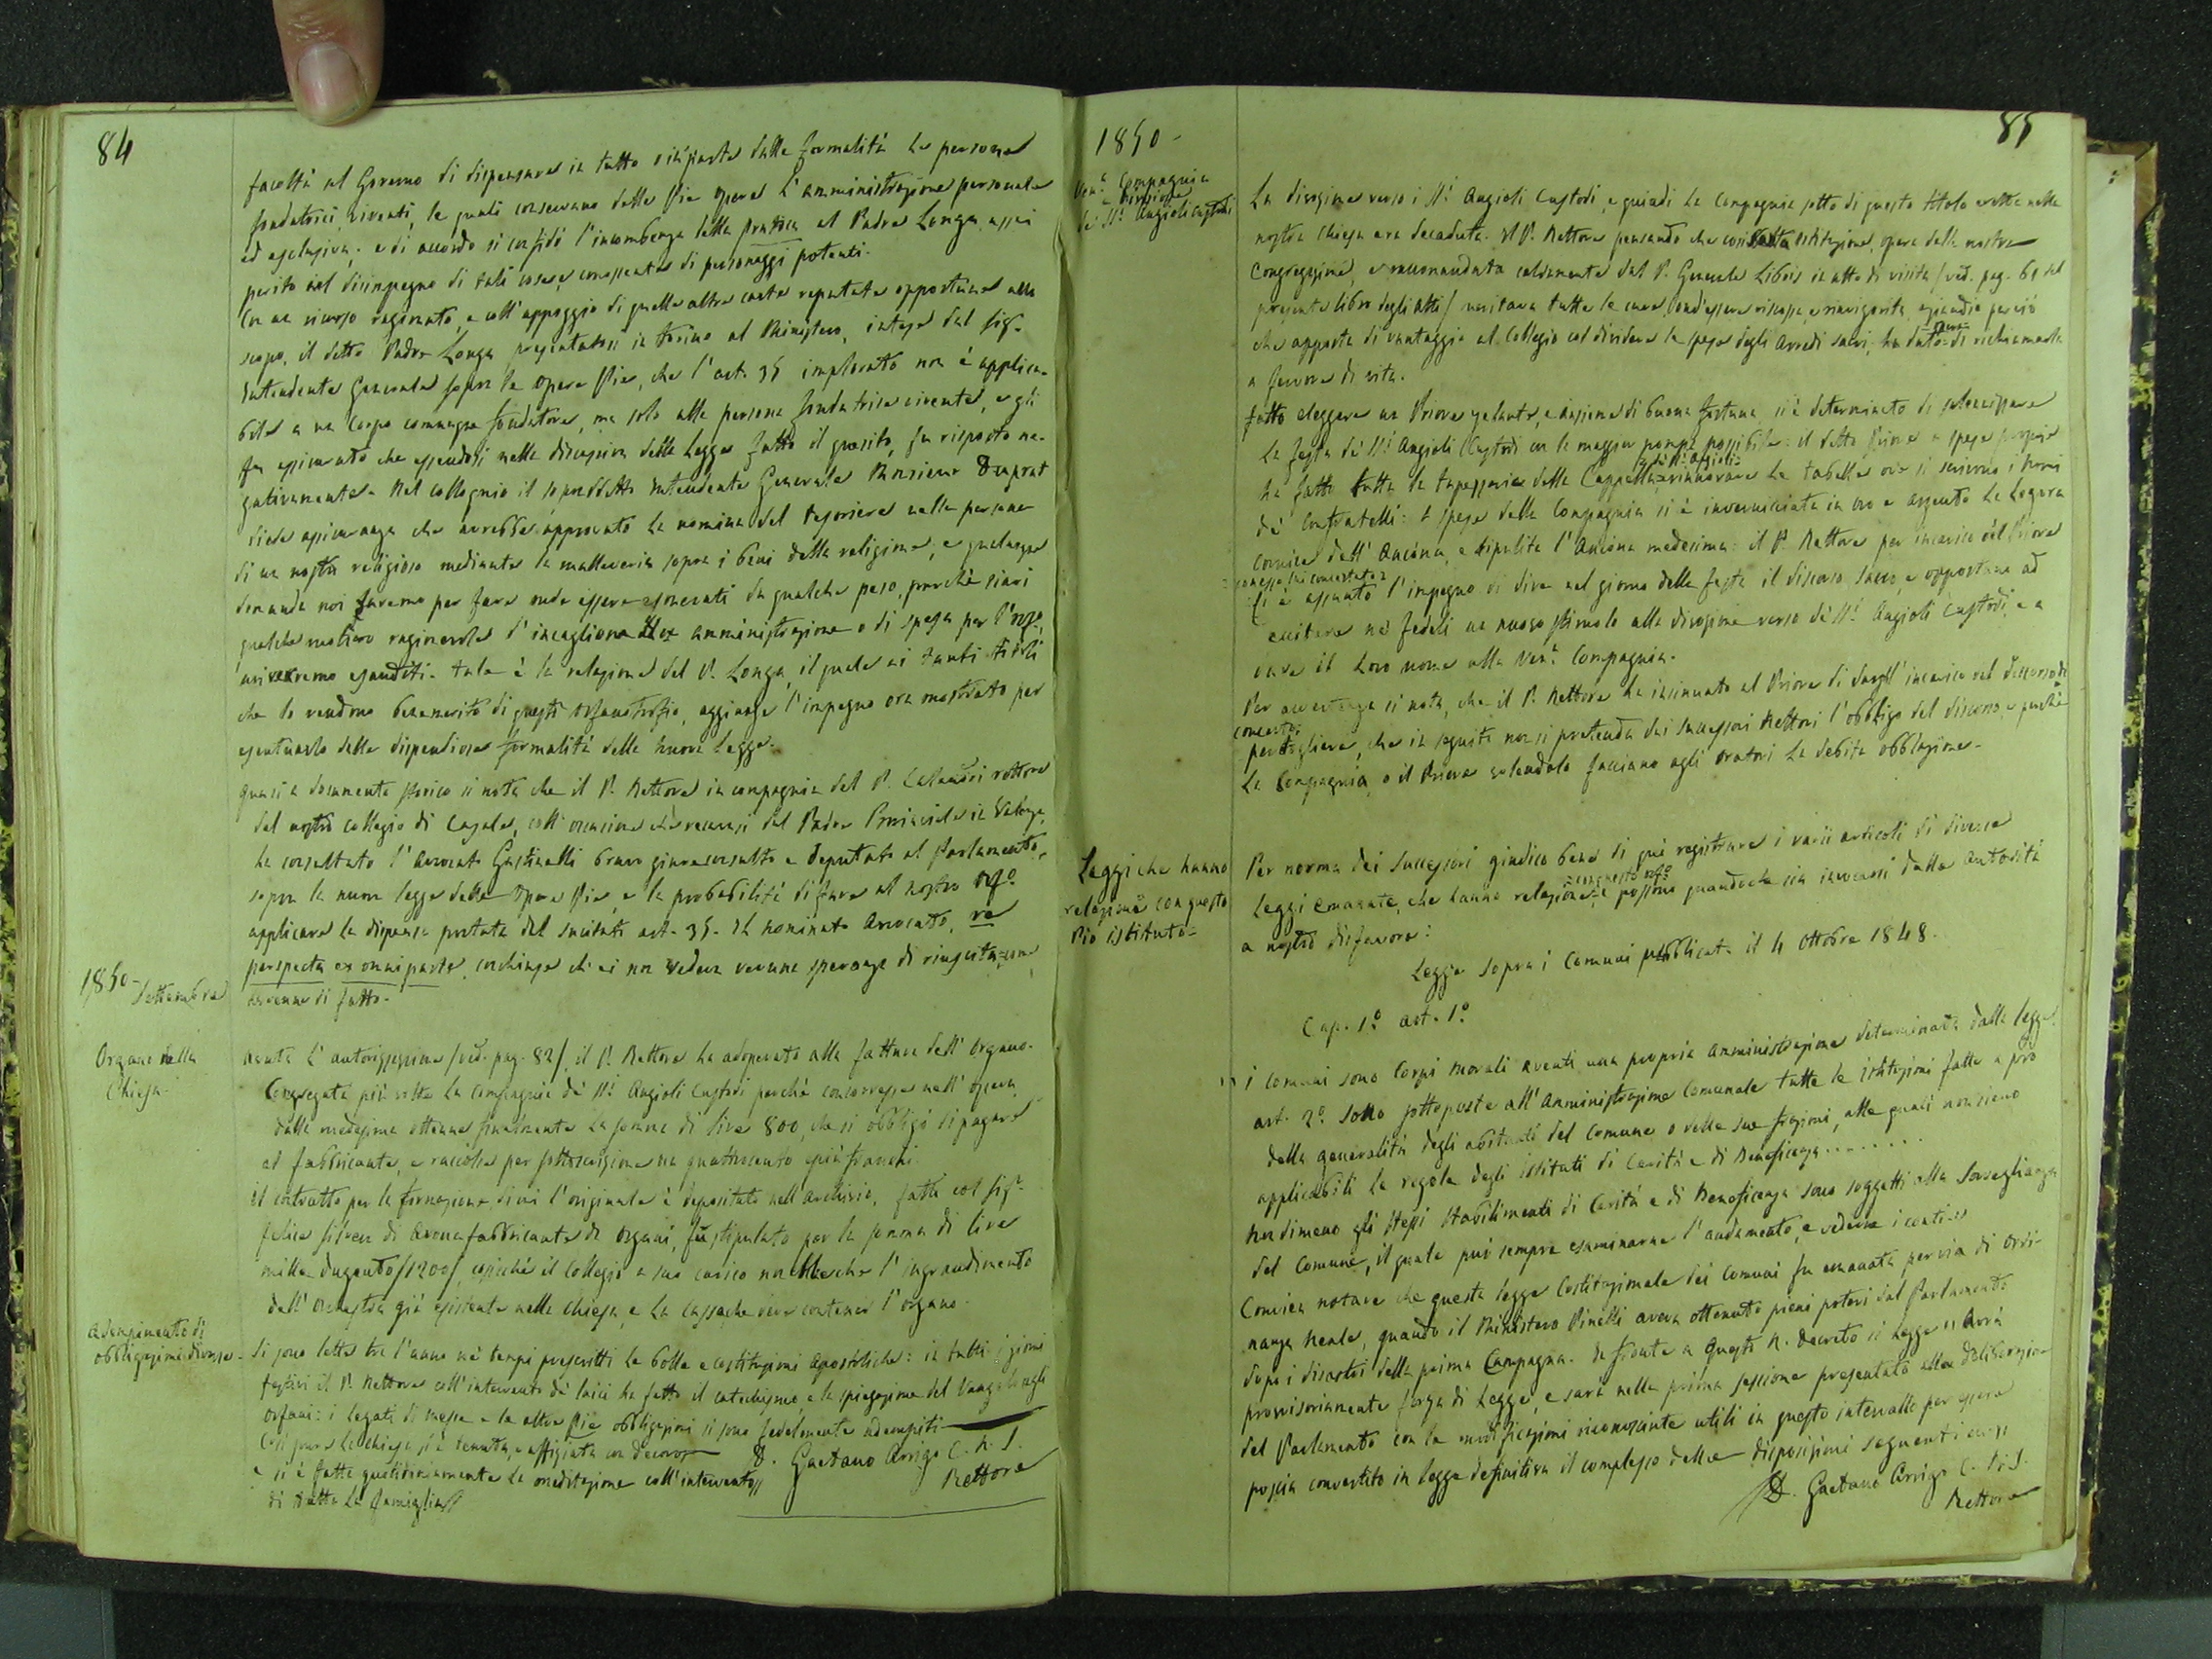 84
facoltà al Governo di dispensare in tutto o in parte dalle formalità le persone
fondatrici viventi, le quali conservano delle Pie opere l'amministrazione personale
ed esclusiva; e di accordo si confidò l'incombenza della pratica al Padre Longa assai
perito nel disimpegno di tali cose, e conoscente di personaggi potenti.
Con un ricorso ragionato, e coll'appoggio di quelle altre carte reputate opportune allo
scopo, il detto Padre Longa presentatosi in torino al Ministero, intese dal Sig.r
Intendente Generale sopra le Opere Pie, che l'art. 35 implorato non è applica-
bile a un Corpo comunque fondatore, ma solo alle persone fondatrici viventi, e gli
fu assicurato che essendosi nella discussione della Legge fatto il quesito, fu risposto ne-
gativamente. Nel colloquio il sopraddetto Intendente Generale Monsieur Duprat
diede assicuranza che avrebbe approvato la nomina del tesoriere nelle persone
di un nostro religioso mediante la malleveria sopra i beni della religione; e qualunque
domanda noi faremo per fare onde essere esonerati da qualche peso, purchè siavi
qualche motivo ragionevole d'incaglio amministrazione o di spesa per l'orfo,
noi verremo esauditi. tale è la relazione del P. Longa, il quale ai tanti titoli
che lo rendono benemerito di questo orfanotrofio, aggiunge l'impegno ora mostrato per
esentuarlo dalle dispendiose formalità della nuova Legge.
Quasi a documento storico si nota che il P. Rettore in compagnia del P. Calandri rettore
del nostro collegio di Casale, coll'occasione che recavasi dal Padre Provinciale in Valenza,
ha consultato l'Avvocato Gastinelli bravo giureconsulto e deputato al Parlamento,
sopra la nuova legge delle Opere Pie, e la probabilità di fare al nostro orfo.
applicare la dispensa portata dal succitato art. 35. Il nominato Avvocato, re
perspecta ex omni parte, conchiuse che ei non vedeva veruna speranza di riuscita, come
avvenne di fatto.
1850-
Settembre
Organo nella
Chiesa.
Avuta l'autorizzazione (ved. pag. 82), il P. Rettore ha adoperato alla fattura dell'Organo.
Congregata più volte la Compagnia de' SS.i Angioli Custodi perchè concorresse nell'opera,
dalla medesima ottenne finalmente la somma di Lire 800, che si obbligò di pagare
al fabbricante, e raccolse per sottoscrizione un quattrocento e più franchi.
il contratto per la formazione di cui l'originale è depositato nell'archivio, fatto col Sig.r
Felice Silvera di Arona fabbricante di Organi, fu stipulato per la somma di Lire
mille duguento (1200), cosicché il Collegio a suo carico non ebbe che l'ingrandimento
dell'Orchestra già esistente nella Chiesa, e la cassa che deve contenere l'organo.
Adempimento di
obbligazioni diverse.
Si sono lette tra l'anno ne' tempi prescritti le bolle e costituzioni apostoliche: in tutti i giorni
festivi il P. Rettore coll'intervento de' laici ha fatto il catechismo, e la spiegazione del Vangelo agli
Orfani: i legati di messe e le altre Pie obbligazioni si sono fedelmente adempiti.
Così pure la chiesa si è tenuta, e uffiziata con decoro
e si è fatta quotidianamente la meditazione coll'intervento
di tutta la famiglia
D. Gaetano Arrigo C. R. S.
Rettore
1850-
85
Ven.e Compagnia
e Divozione
de' SS.i Angioli Custodi
La divozione verso i SS.i Angioli Custodi, e quindi la Compagnia sotto di questo titolo eretta nella
nostra Chiesa era decaduta. Il P. Rettore pensando che così fatta istituzione, opera della nostra
Congregazione, e raccomandata caldamente dal P. Generale Libois in atto di visita (ved. pag. 61 del
presente libro degli Atti) meritava tutte le cure ond'essere riscossa, e rinvigorita, eziandio per ciò
che apporta di vantaggio al Collegio col dividere le spese degli Arredi sacri, ha dato opera di richiamarla
a fervore di vita.
fatto eleggere un Priore zelante, e insieme di buona fortuna si è determinato di solennizzare
la festa de' SS.i Angioli Custodi con la maggior pompa possibile: il detto Priore a spese proprie
ha fatto tutta la tapezzeria della Cappella de' SS. Angioli, e rinnovare la tabella ove si scrivono i nomi
de' Confratelli: a spese della Compagnia si è inverniciata in oro e argento la logora
cornice dell'Ancona, e ripulita l'Ancona medesima: il P. Rettore per incarico del Priore
si è assunto l'impegno di dire nel giorno della festa il discorso sacro, e opportuno ad
eccitare ne' fedeli un nuovo stimolo alla divozione verso de' SS.i Angioli Custodi, e a
dare il loro nome alla Ven.e Compagnia.
Per avvertenza si nota, che il P. Rettore ha insinuato al Priore di dargli incarico del discorso
per togliere, che in seguito non si pretenda dai successori Rettori l'obbligo del discorso, e perchè
la Compagnia, o il Priore volendolo facciano agli oratori la debita obblazione.
Leggi che hanno
relazione con questo
Pio istituto-
Per norma dei Successori giudico bene di qui registrare i varii articoli di diverse
Leggi emanate, che hanno relazione con questo orfo. e possono quandoche sia invocarsi dalle autorità
a nostro disfavore:
Legge sopra i Comuni pubblicata il 4 Ottobre 1848.
Cap. 1.o art. 1.o
" i Comuni sono Corpi morali aventi una propria amministrazione determinata dalla legge.
art. 2.o Sono sottoposte all'amministrazione Comunale tutte le istituzioni fatte a prò
della generalità degli abitanti del Comune o delle sue frazioni, alle quali non sieno
applicabili le regole degli istituti di Carità e di Beneficenza........
Nondimeno gli stessi stabilimenti di Carità e di Beneficenza sono soggetti alla Sorveglianza
del Comune, il quale può sempre esaminarne l'andamento, e vederne i conti "
Convien notare che questa legge Costituzionale dei Comuni fu emanata per via di Ordi-
nanza Reale, quando il Ministero Pinelli aveva ottenuto pieni poteri dal Parlamento
dopo i disastri della prima Campagna. In fronte a questo R. Decreto si legge " Avrà
provvisoriamente forza di Legge, e sarà nella prima sessione presentato alla deliberazione
del Parlamento con le modificazioni riconosciute utili in questo intervallo per essere
poscia convertito in legge definitiva il complesso delle disposizioni seguenti ecc. "
D. Gaetano Arrigo C. R. S.
Rettore